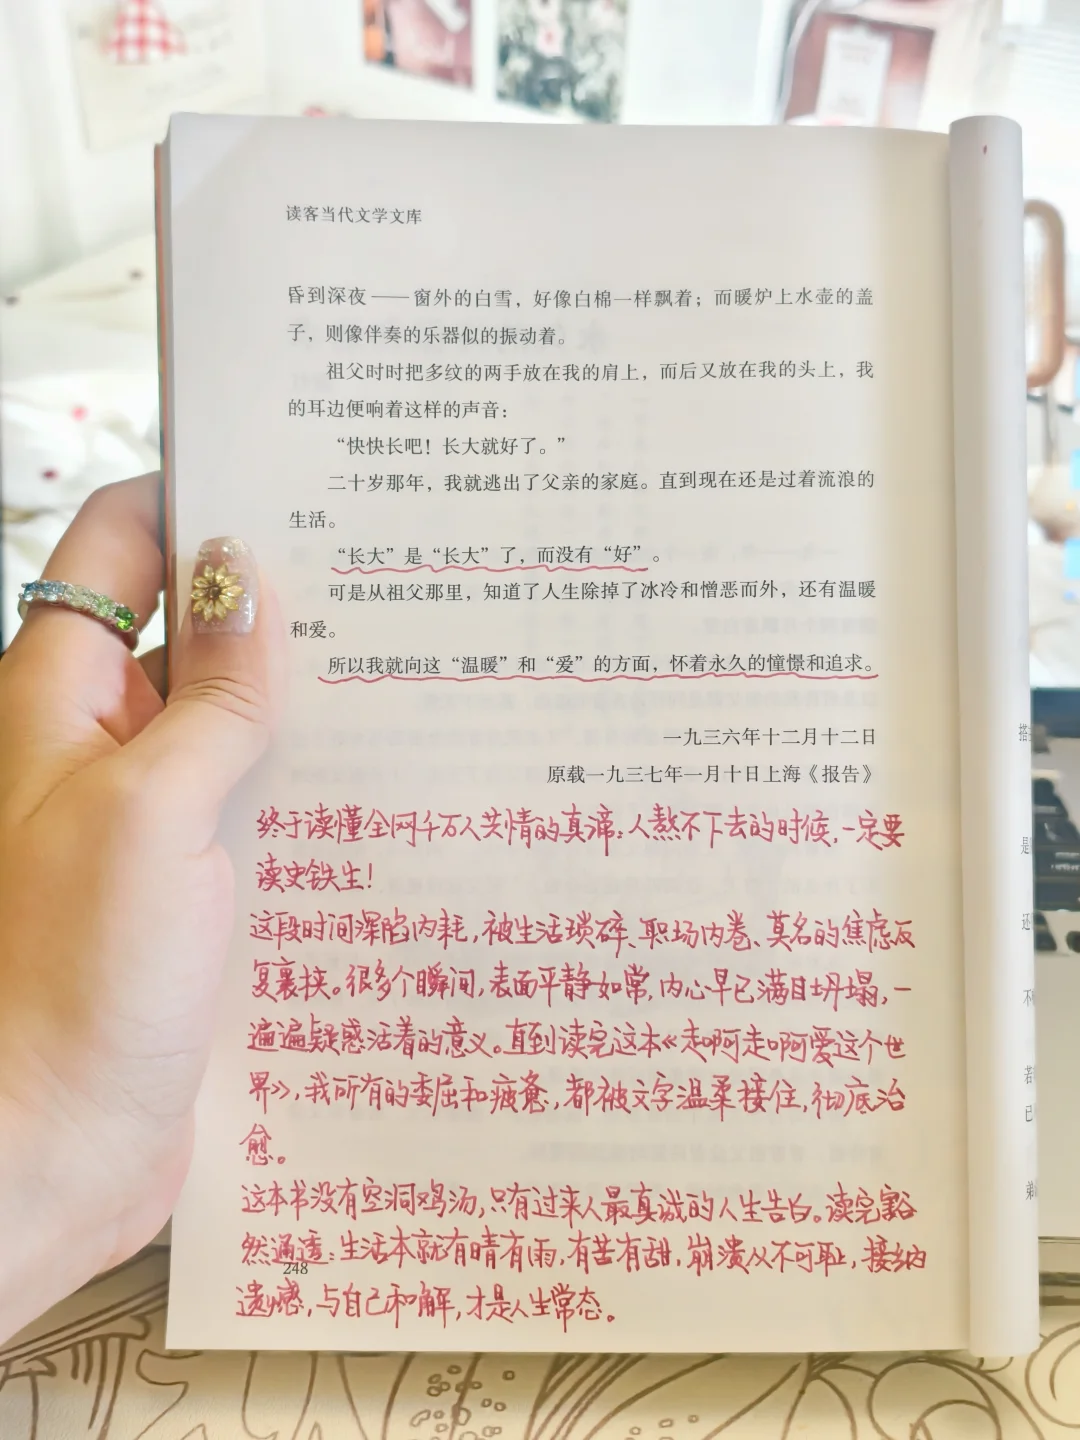 读客当代文学文库
昏到深夜——窗外的白雪，好像白棉一样飘着；而暖炉上水壶的盖
子，则像伴奏的乐器似的振动着。
祖父时时把多纹的两手放在我的肩上，而后又放在我的头上，我
的耳边便响着这样的声音：
“快快长吧！长大就好了。”
二十岁那年，我就逃出了父亲的家庭。直到现在还是过着流浪的
生活。
“长大”是“长大”了，而没有“好”。
可是从祖父那里，知道了人生除掉了冰冷和憎恶而外，还有温暖
和爱。
所以我就向这“温暖”和“爱”的方面，怀着永久的憧憬和追求。
一九三六年十二月十二日
原载一九三七年一月十日上海《报告》
终于读懂全网千万人共情的真谛：人熬不下去的时候，一定要
读史铁生！
这段时间深陷内耗，被生活琐碎、职场内卷、莫名的焦虑反
复裹挟。很多个瞬间，表面平静如常，内心早已满目坍塌，一
遍遍疑惑活着的意义。直到读完这本《走啊走啊爱这个世
界》，我所有的委屈和疲惫，都被文字温柔接住，彻底治
愈。
这本书没有空洞鸡汤，只有过来人最真诚的人生告白。读完豁
然通透：生活本就有晴有雨，有苦有甜，崩溃从不可耻，接纳
248
遗憾，与自己和解，才是人生常态。